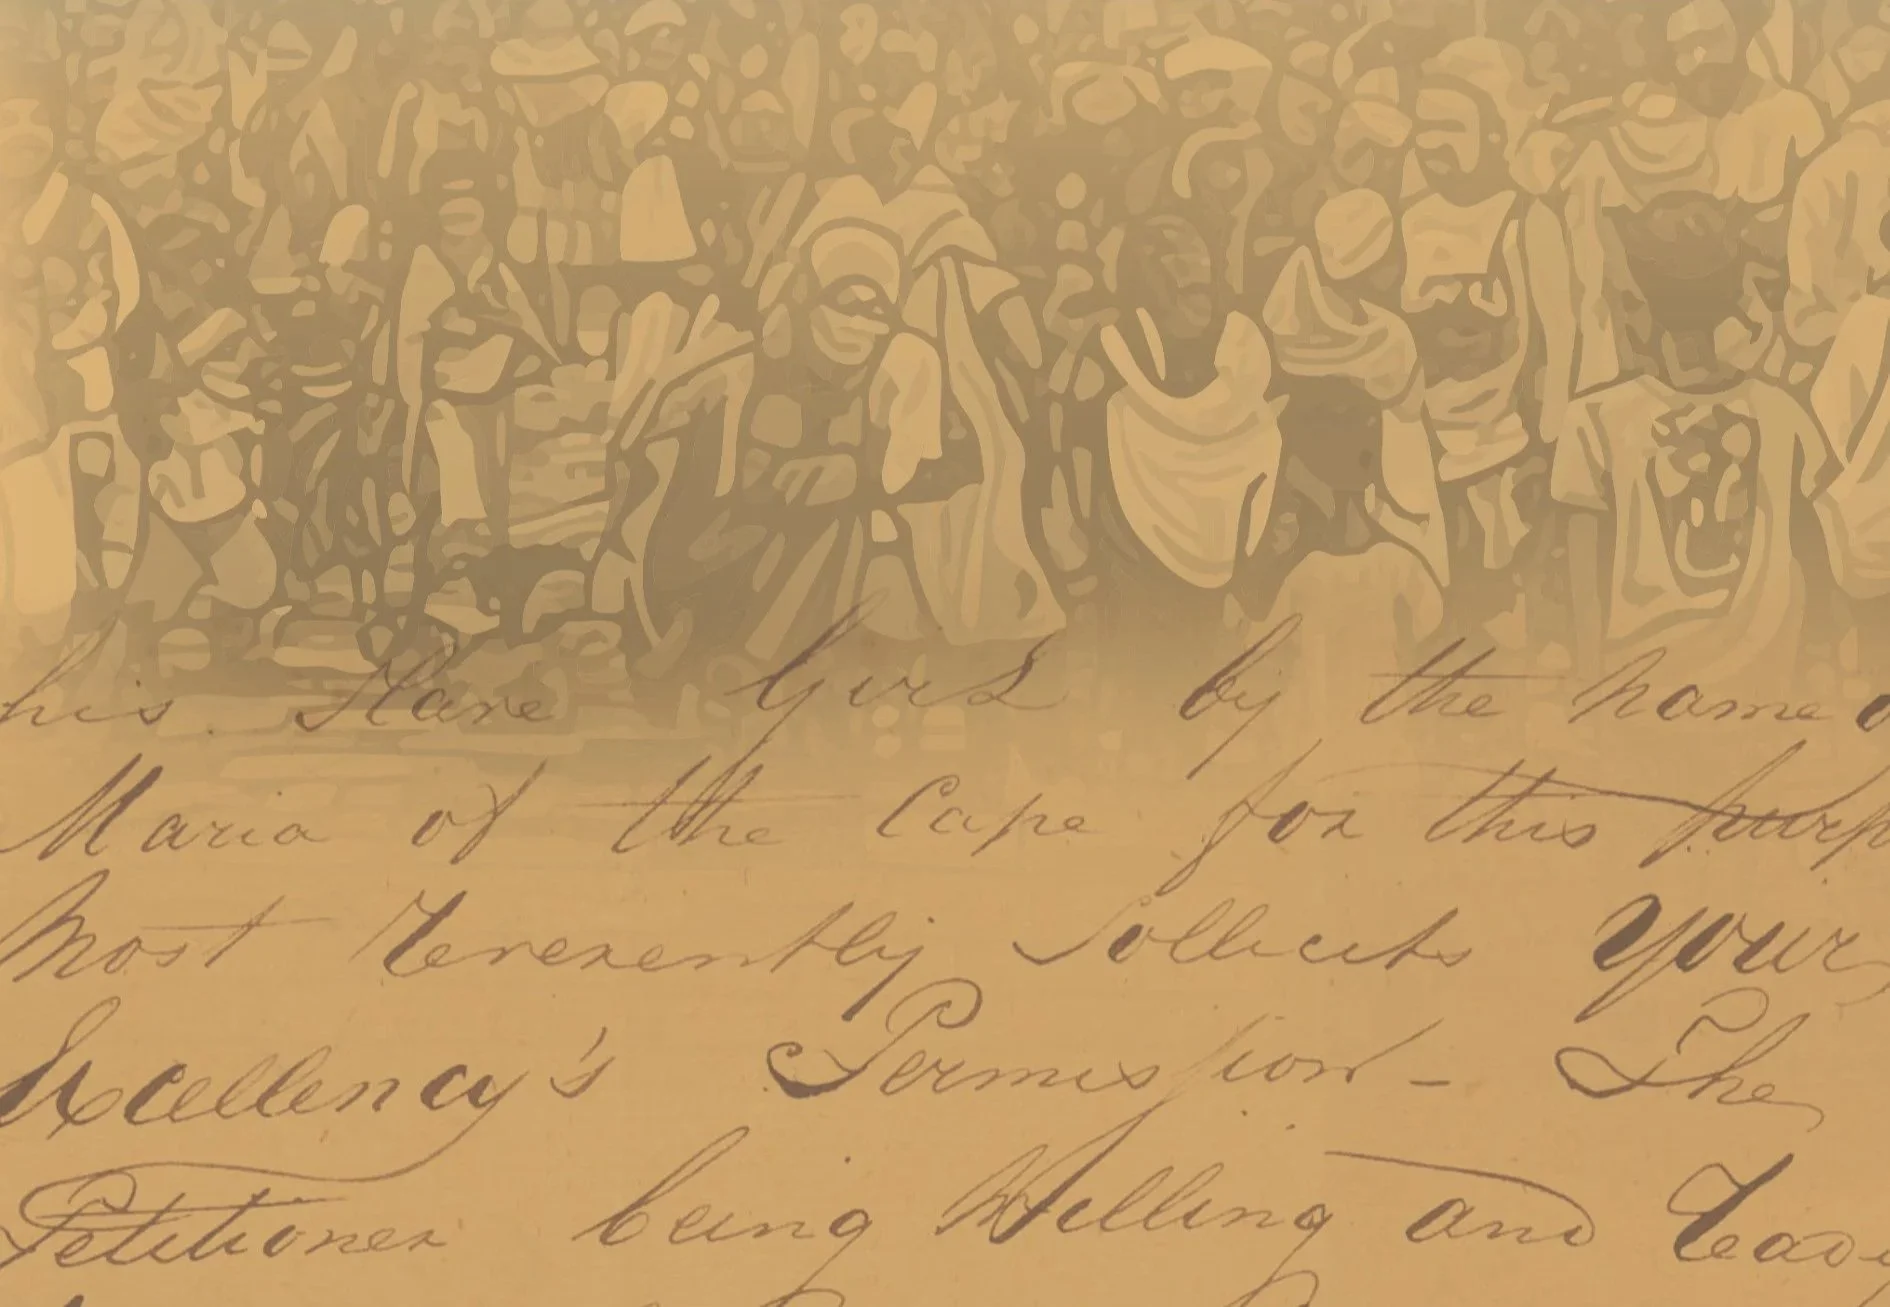 his Slave Girl by the name o
Maria of the Cape for this purp
Most Reverently Sollicits Your
Excellency's Permission - The
Petitioner being Willing and Ready